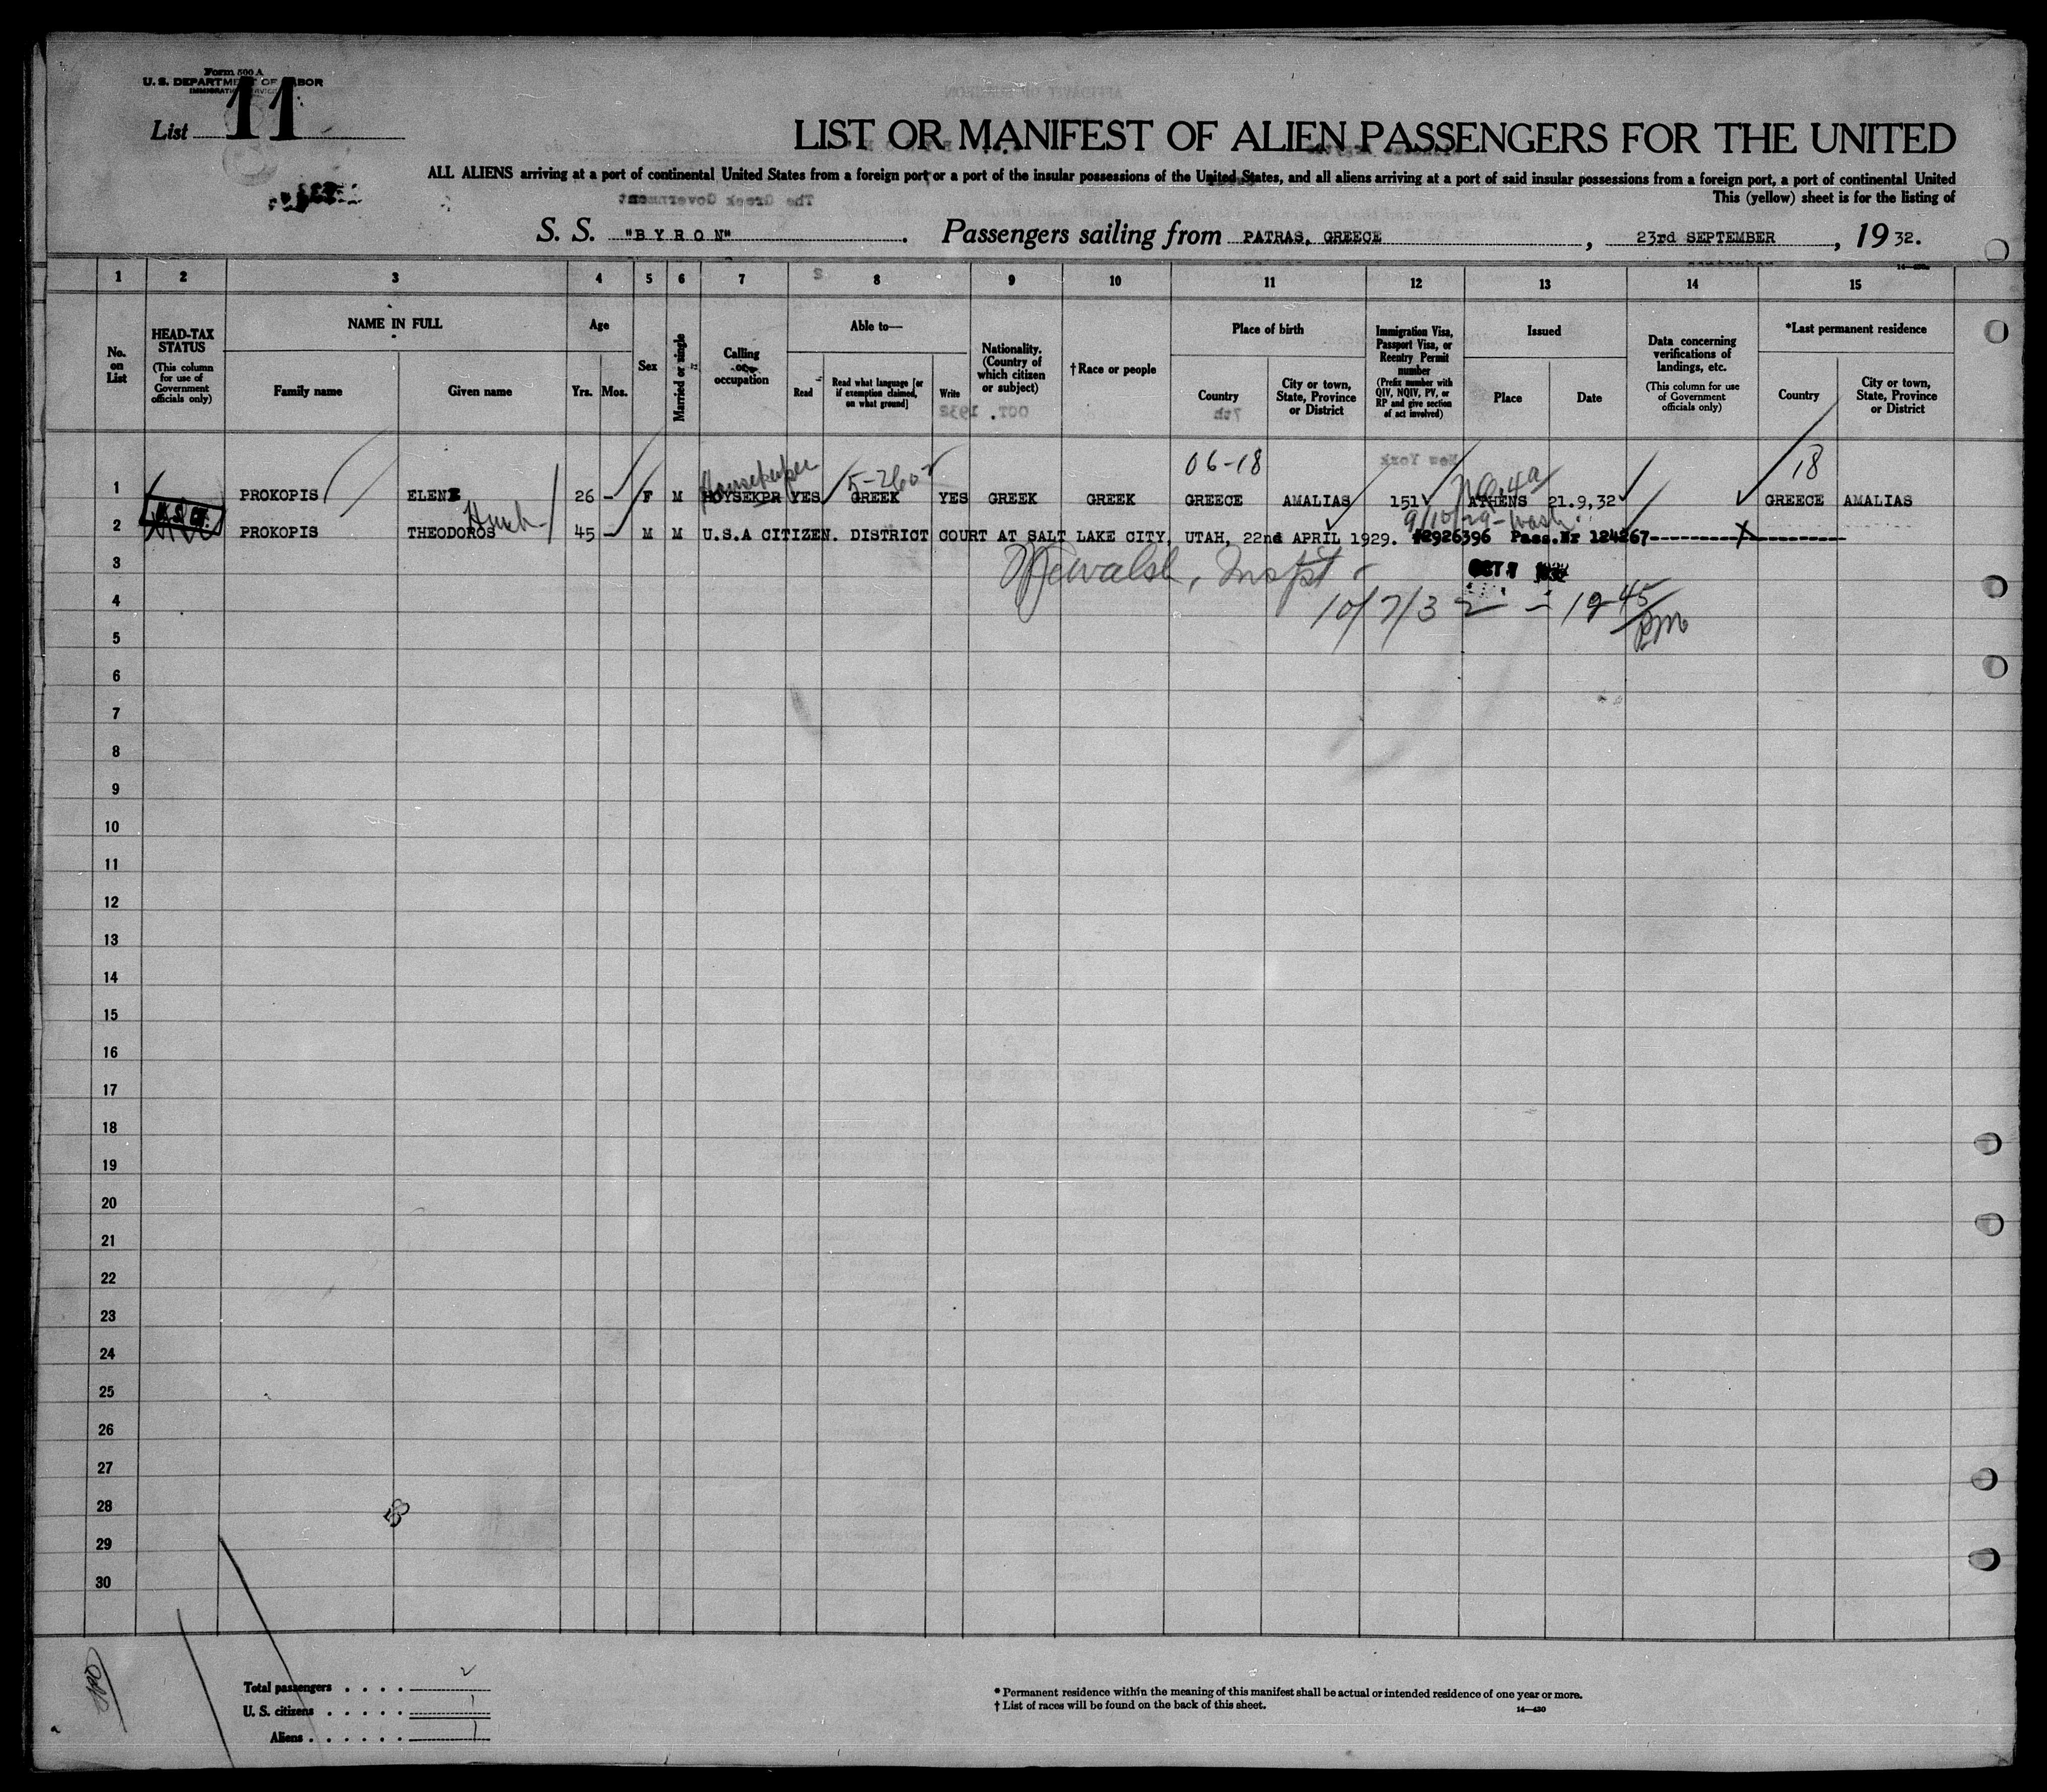 Form 500 A
U. S. DEPARTMENT OF LABOR
IMMIGRATION SERVICE
List 11
LIST OR MANIFEST OF ALIEN PASSENGERS FOR THE UNITED
ALL ALIENS arriving at a port of continental United States from a foreign port or a port of the insular possessions of the United States, and all aliens arriving at a port of said insular possessions from a foreign port, a port of continental United
This (yellow) sheet is for the listing of
The Greek Government
S. S. "BYRON". Passengers sailing from PATRAS, GREECE, 23rd SEPTEMBER, 1932.
1 2 3 4 5 6 7 8 9 10 11 12 13 14 15
No. on List
HEAD-TAX STATUS (This column for use of Government officials only)
NAME IN FULL
Family name
Given name
Age
Yrs. Mos.
Sex
Married or single
Calling or occupation
Able to—
Read
Read what language [or if exemption claimed, on what ground]
Write
Nationality. (Country of which citizen or subject)
†Race or people
Place of birth
Country
City or town, State, Province or District
Immigration Visa, Passport Visa, or Reentry Permit number (Prefix number with QIV, NQIV, PV, or RP and give section of act involved)
Issued
Place
Date
Data concerning verifications of landings, etc. (This column for use of Government officials only)
*Last permanent residence
Country
City or town, State, Province or District
OCT. 1932
7th
New York
Housekeeper 5-260 06-18 NQ.4a 18
1 PROKOPIS ELENE 26 - F M HOYSEKPR YES GREEK YES GREEK GREEK GREECE AMALIAS 151 ATHENS 21.9.32 GREECE AMALIAS
U.S.CIT.
Husb
9/10/29-Wash
2 PROKOPIS THEODOROS 45 - M M U.S.A CITIZEN. DISTRICT COURT AT SALT LAKE CITY, UTAH, 22nd APRIL 1929. #2926396 Pass.Nr 124267
3 Walsh, Inspt OCT 7 1932
4 10/7/32 - 12 45/PM
5
6
7
8
9
10
11
12
13
14
15
16
17
18
19
20
21
22
23
24
25
26
27
28
29
30
Total passengers . . . . 2
U. S. citizens . . . . . 1
Aliens . . . . . . 1
* Permanent residence within the meaning of this manifest shall be actual or intended residence of one year or more.
† List of races will be found on the back of this sheet.
14—430